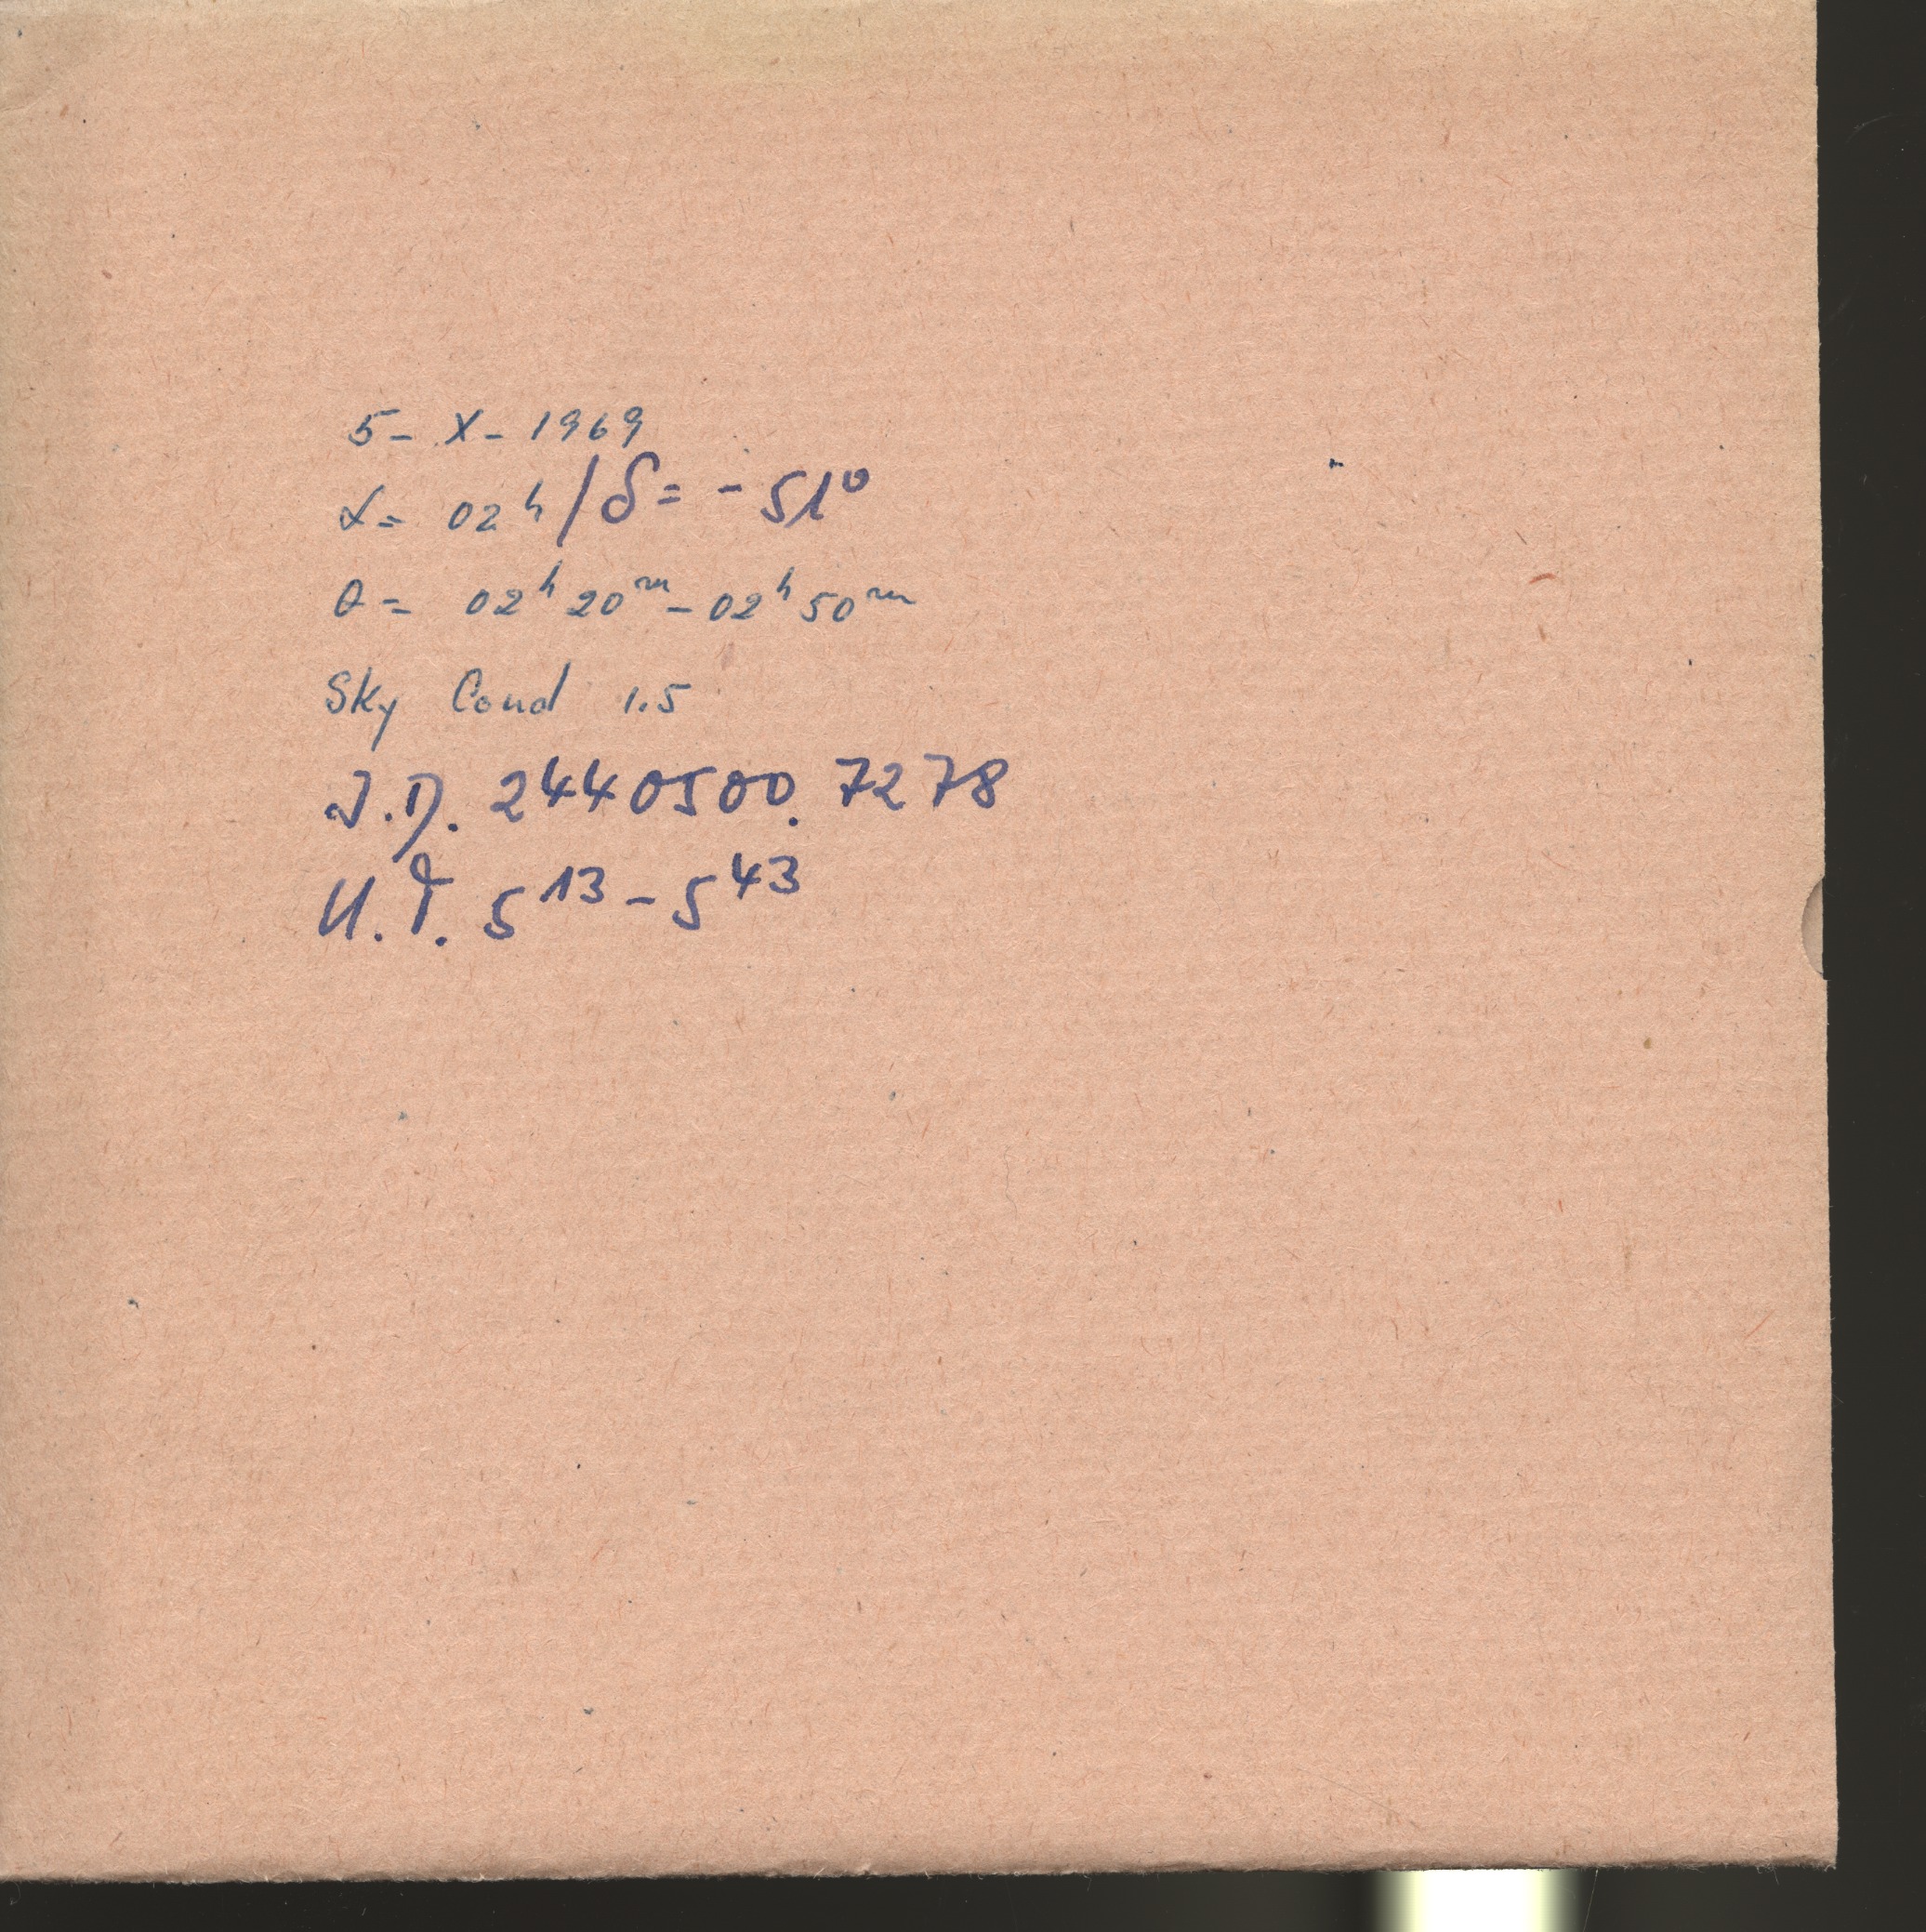 5 - X - 1969
α = 02ʰ / δ = - 51°
θ = 02ʰ 20ᵐ - 02ʰ 50ᵐ
Sky Cond 1.5
J.D. 2440500.7278
U.T. 5¹³ - 5⁴³